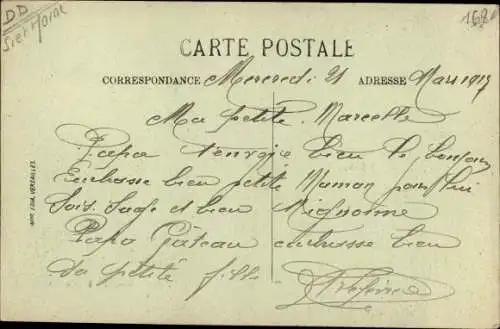 DD
S et Marne
168
CARTE POSTALE
CORRESPONDANCE Mercredi 21 ADRESSE Mars 1917
Ma petite Marcelle
Papa t'envoie bien le bonjour
Embrasse bien petite Maman pour lui
Sois Sage et bien Mignonne
Papa Gateau embrasse bien
sa petite fille